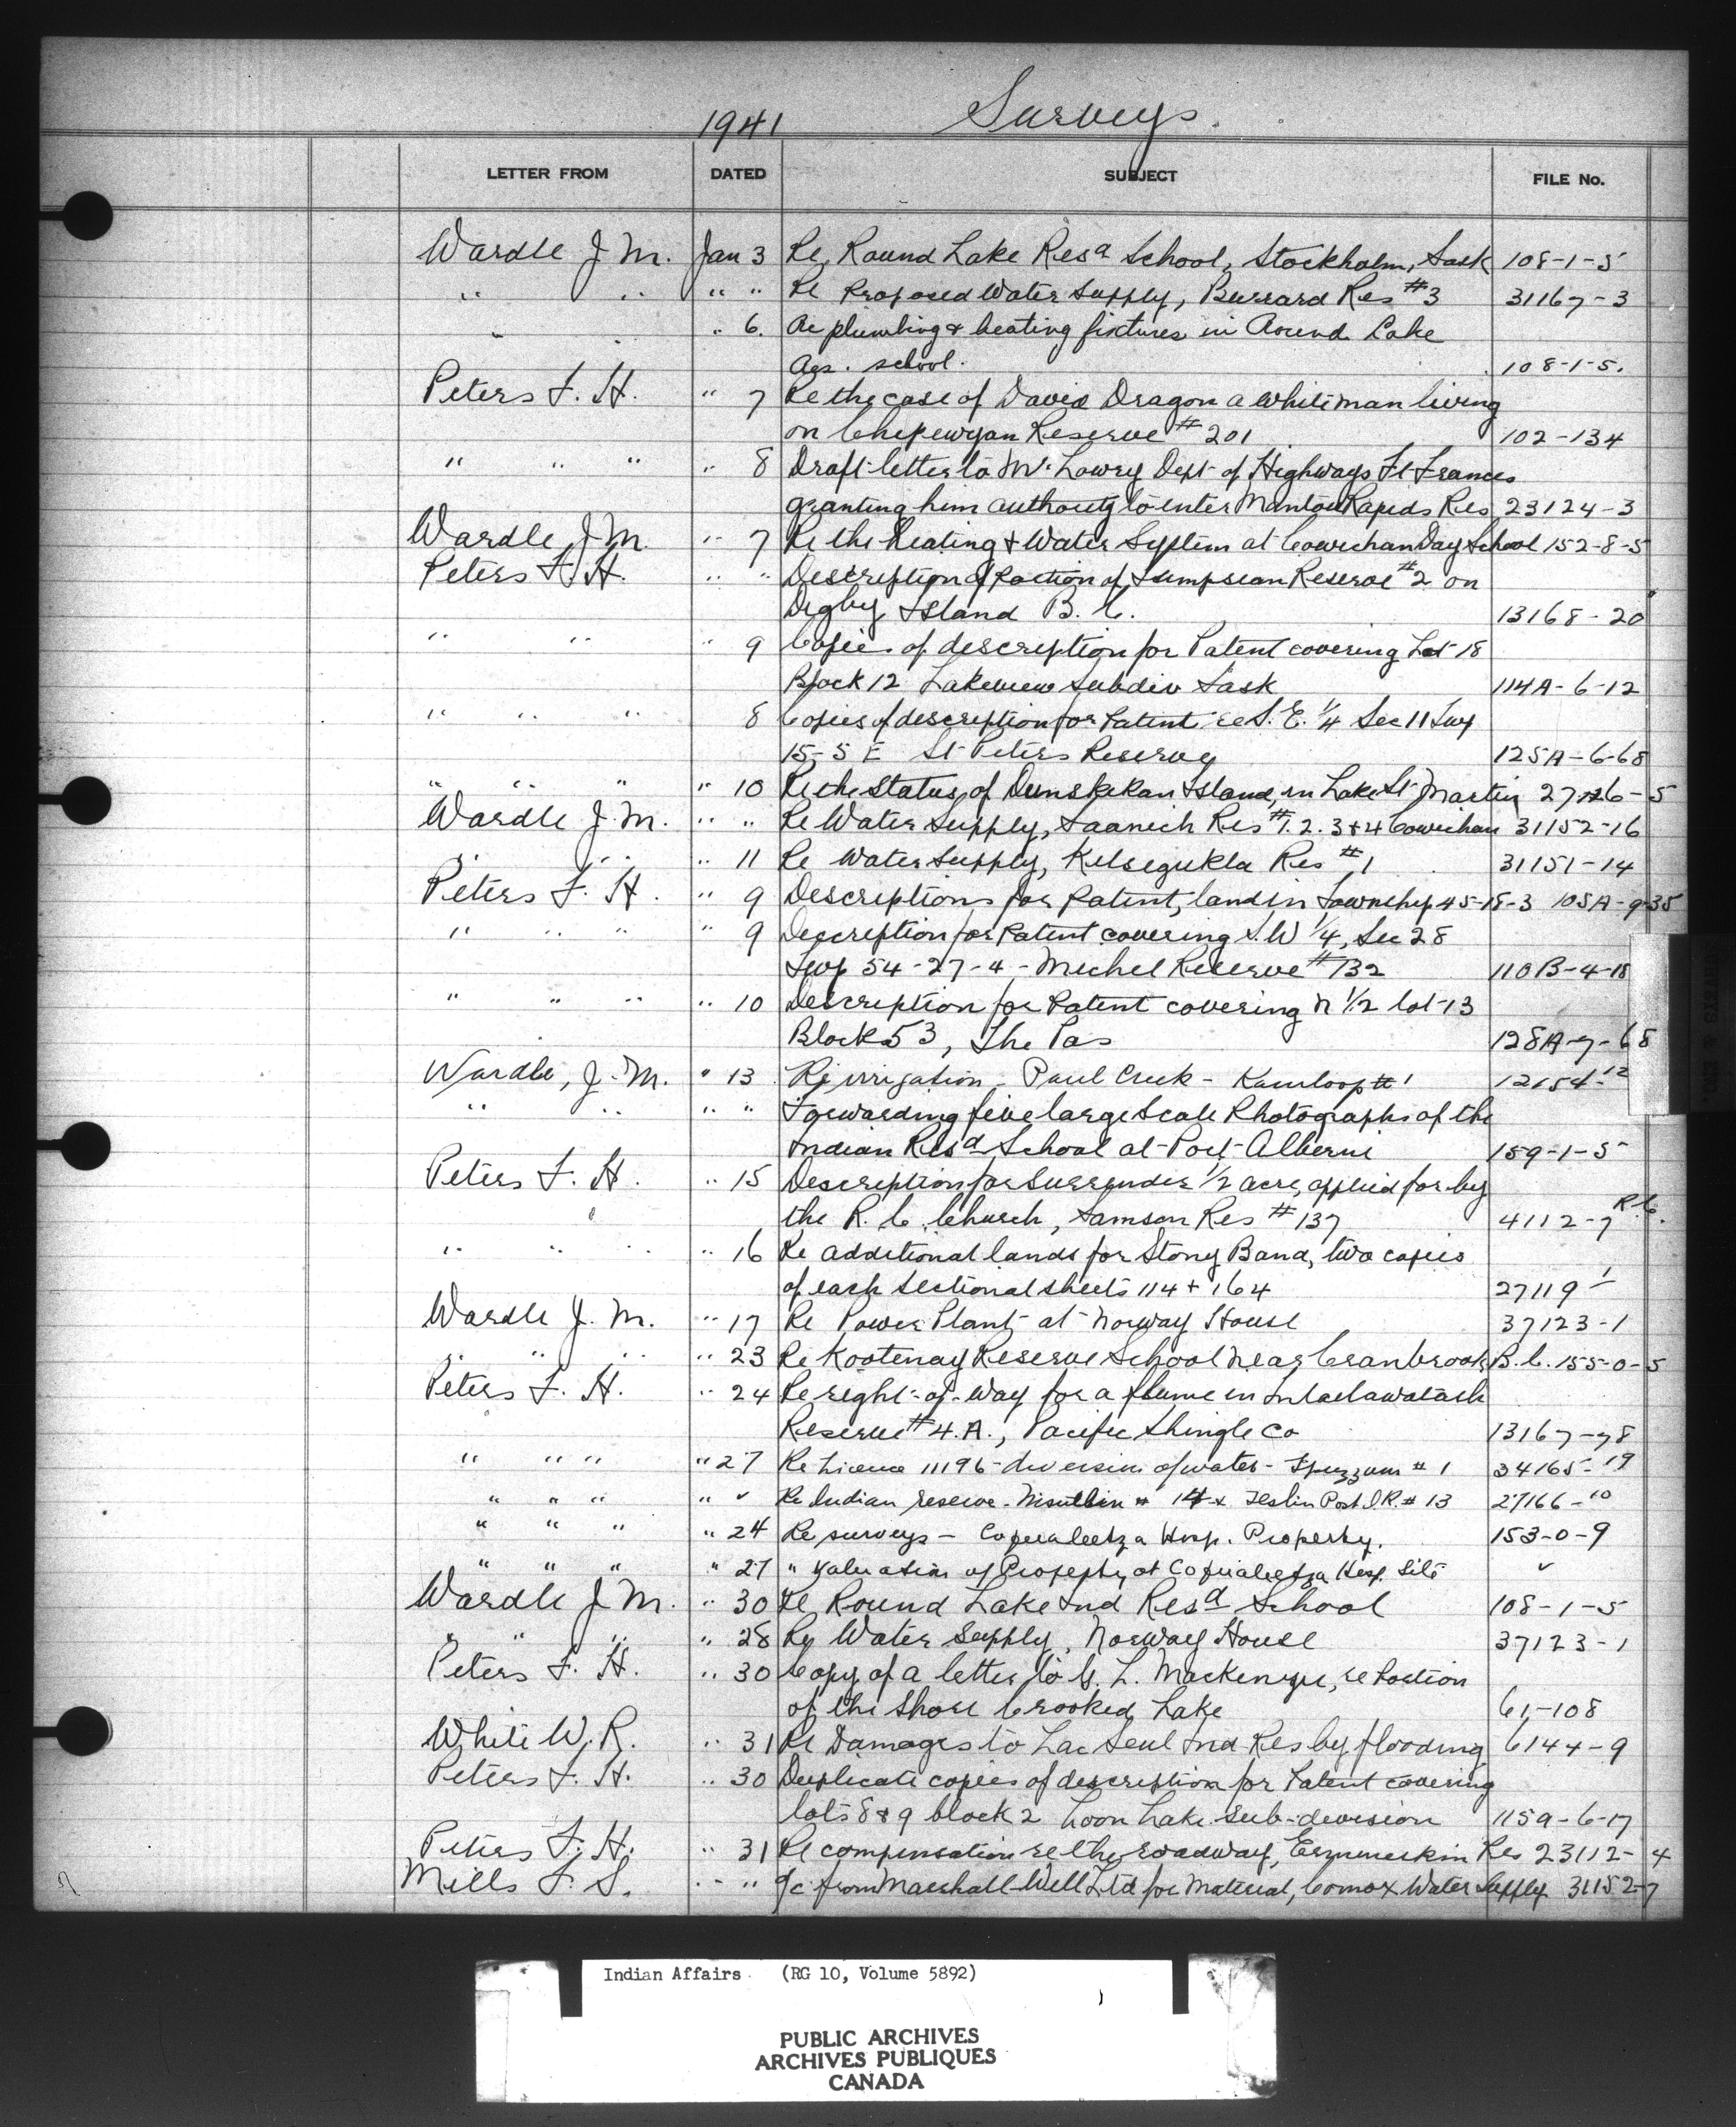 1941 Surveys.
LETTER FROM DATED SUBJECT FILE No.
Wardle J. M. Jan 3 Re Round Lake Resd School, Stockholm, Sask 108-1-5
" " " " Re Proposed Water Supply, Burrard Res #3 31167-3
" " " 6. Re plumbing & heating fixtures in Round Lake
Res. school. 108-1-5.
Peters F. H. " 7 Re the case of David Dragon a white man living
on Chepewyan Reserve #201 102-134
" " " " 8 Draft letter to Mr Lowry Dept of Highways Ft Frances
granting him authority to enter Manitou Rapids Res 23124-3
Wardle J. M. " 7 Re the heating & Water System at Cowichan Day School 152-8-5
Peters F. H. " " Description of Portion of Tsimpsean Reserve #2 on
Digby Island B. C. 13168-20
" " " 9 Copies of description for Patent covering Lot 18
Block 12 Lakeview Subdiv Sask 114A-6-12
" " " 8 Copies of description for Patent re S. E. 1/4 Sec 11 Twp
15-5 E St Peters Reserve 125A-6-68
" " " " 10 Re the Status of Dunskekan Island, in Lake St Martin 27126-5
Wardle J. M. " " Re Water Supply, Saanich Res #1. 2. 3 & 4 Cowichan 31152-16
" " " 11 Re Water Supply, Kitsegukla Res #1 31151-14
Peters F. H. " 9 Descriptions for Patent, land in Township 45-18-3 105A-9-35
" " " " 9 Description for Patent covering S. W 1/4, Sec 28
Twp 54-27-4 - Michel Reserve #132 110B-4-18
" " " " 10 Description for Patent covering N 1/2 lot 13
Block 53, The Pas 128A-7-68
Wardle, J. M. " 13 Re irrigation - Paul Creek - Kamloop #1 12154-12
" " " " Forwarding five large Scale Photographs of the
Indian Resd School at Port Alberni 159-1-5
Peters F. H. " 15 Description for Surrender 1/2 acre, applied for by
the R. C. Church, Samson Res #137 4112-7 R.C.
" " " " 16 Re additional lands for Stony Band, two copies
of each sectional sheets 114 & 164 27119-1
Wardle J. M. " 17 Re Power Plant at Norway House 37123-1
" " " " 23 Re Kootenay Reserve School near Cranbrook B. C. 155-0-5
Peters F. H. " 24 Re right-of-way for a flume in
Reserve #4. A., Pacific Shingle Co 13167-78
" " " " 27 Re Licence 11196 - diversion of water - Spuzzum #1 34165-19
" " " " " Re Indian reserve - Nisutlin # 14 & Teslin Post I.R. #13 27166-10
" " " " 24 Re surveys - Coqualeetza Hosp. Property. 153-0-9
" " " " 27 " Valuation of Property at Coqualeetza Hosp. Site "
Wardle J. M. " 30 Re Round Lake Ind Resd School 108-1-5
" " " " 28 Re Water Supply, Norway House 37123-1
Peters F. H. " 30 Copy of a letter to G. L. Mackenzie, re Portion
of the Shore Crooked Lake 61-108
White W. R. " 31 Re Damages to Lac Seul Ind Res by flooding 6144-9
Peters F. H. " 30 Duplicate copies of description for Patent covering
lots 8 & 9 block 2 Loon Lake Sub-division 1159-6-17
Peters F. H. " 31 Re compensation re the roadway, Ermineskin Res 23112-4
Mills F. S. " " a/c from Marshall-Well Ltd for Material, Comox Water Supply 31152-7
Indian Affairs (RG 10, Volume 5892)
PUBLIC ARCHIVES
ARCHIVES PUBLIQUES
CANADA